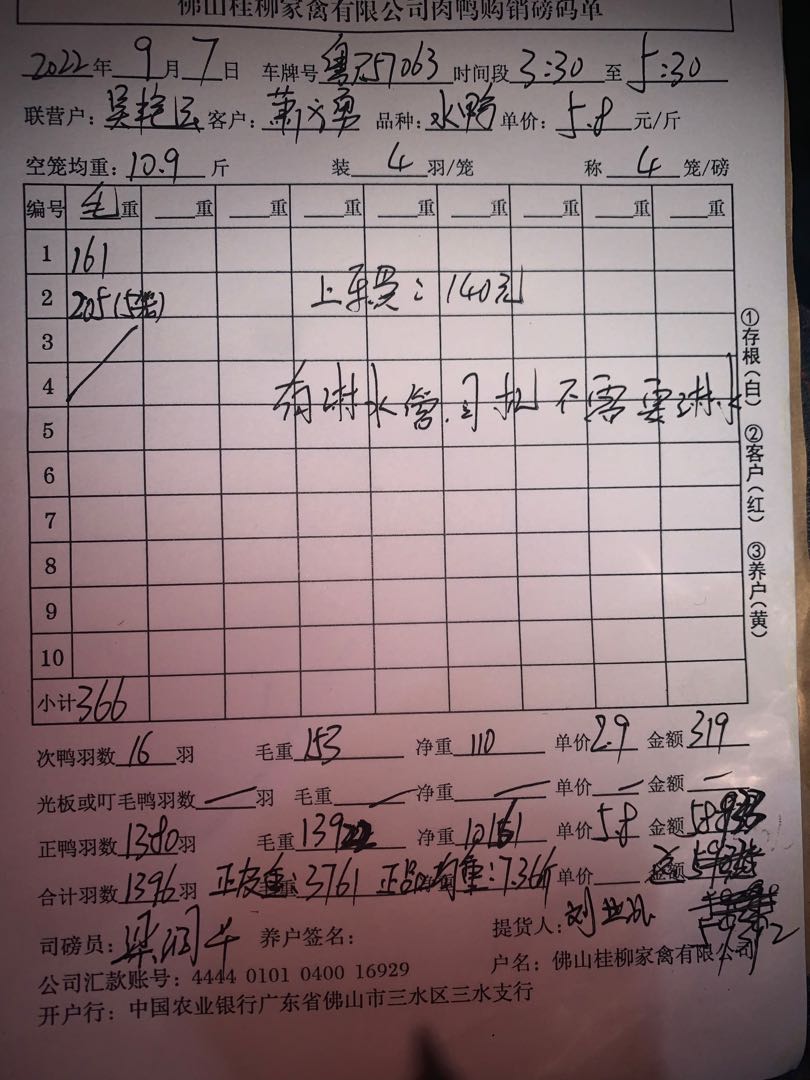 佛山桂柳家禽有限公司肉鸭购销磅码单
2022年 9月 7日 车牌号 57063 时间段 3:30 至 5:30
联营户: 客户: 品种: 水鸭 单价: 5.8 元/斤
空笼均重: 10.9 斤 装 4 羽/笼 称 4 笼/磅
编号 毛重 重 重 重 重 重 重 重 重
1 161
2 205(5笼) 上车费:140元
3
4 有淋水管,司机不需要淋水
5
6
7
8
9
10
小计 366
①存根(白) ②客户(红) ③养户(黄)
次鸭羽数 16 羽 毛重 153 净重 110 单价 2.9 金额 319
光板或叮毛鸭羽数 羽 毛重 净重 单价 金额
正鸭羽数 1380 羽 毛重 13922 净重 10161 单价 5.8 金额
合计羽数 1396 羽 正皮重:3761 正品均重:7.36斤 单价
司磅员: 养户签名: 提货人:
公司汇款账号: 4444 0101 0400 16929 户名: 佛山桂柳家禽有限公司
开户行: 中国农业银行广东省佛山市三水区三水支行